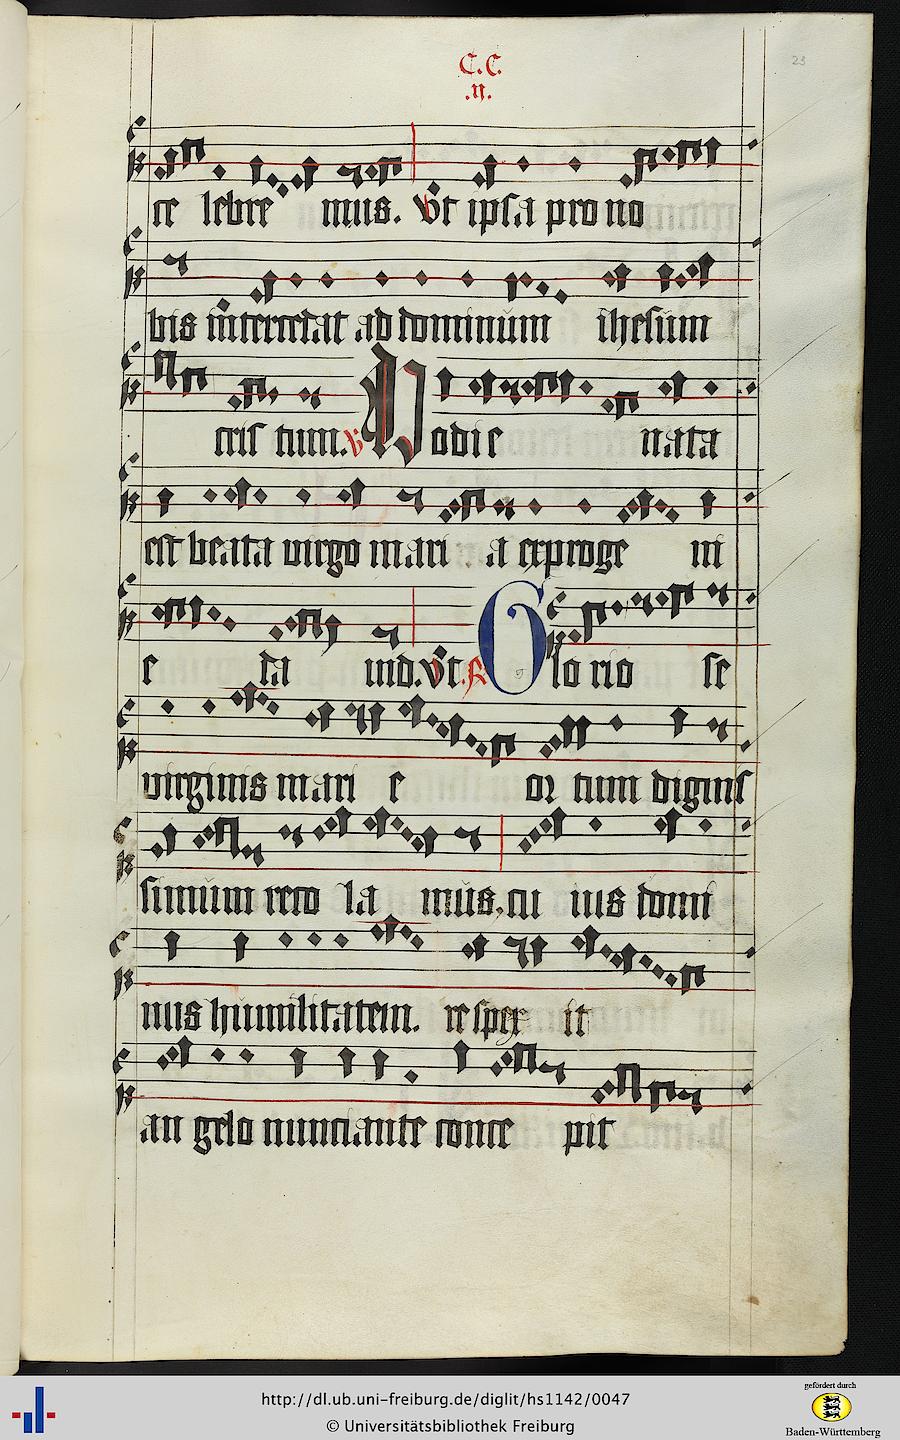 C.C.
.ij.
23
re lebre mus. Vt ipsa pro no
bis intercedat ad dominum ihesum
cris tum. V Hodie nata
est beata virgo mari a ex proge ni
e da uid. Vt. R Glo rio se
virginis mari e or tum dignis
simum reco la mus, cu ius domi
nus humilitatem. re spex it
an gelo nunciante conce pit
http://dl.ub.uni-freiburg.de/diglit/hs1142/0047
© Universitätsbibliothek Freiburg
gefördert durch
Baden-Württemberg